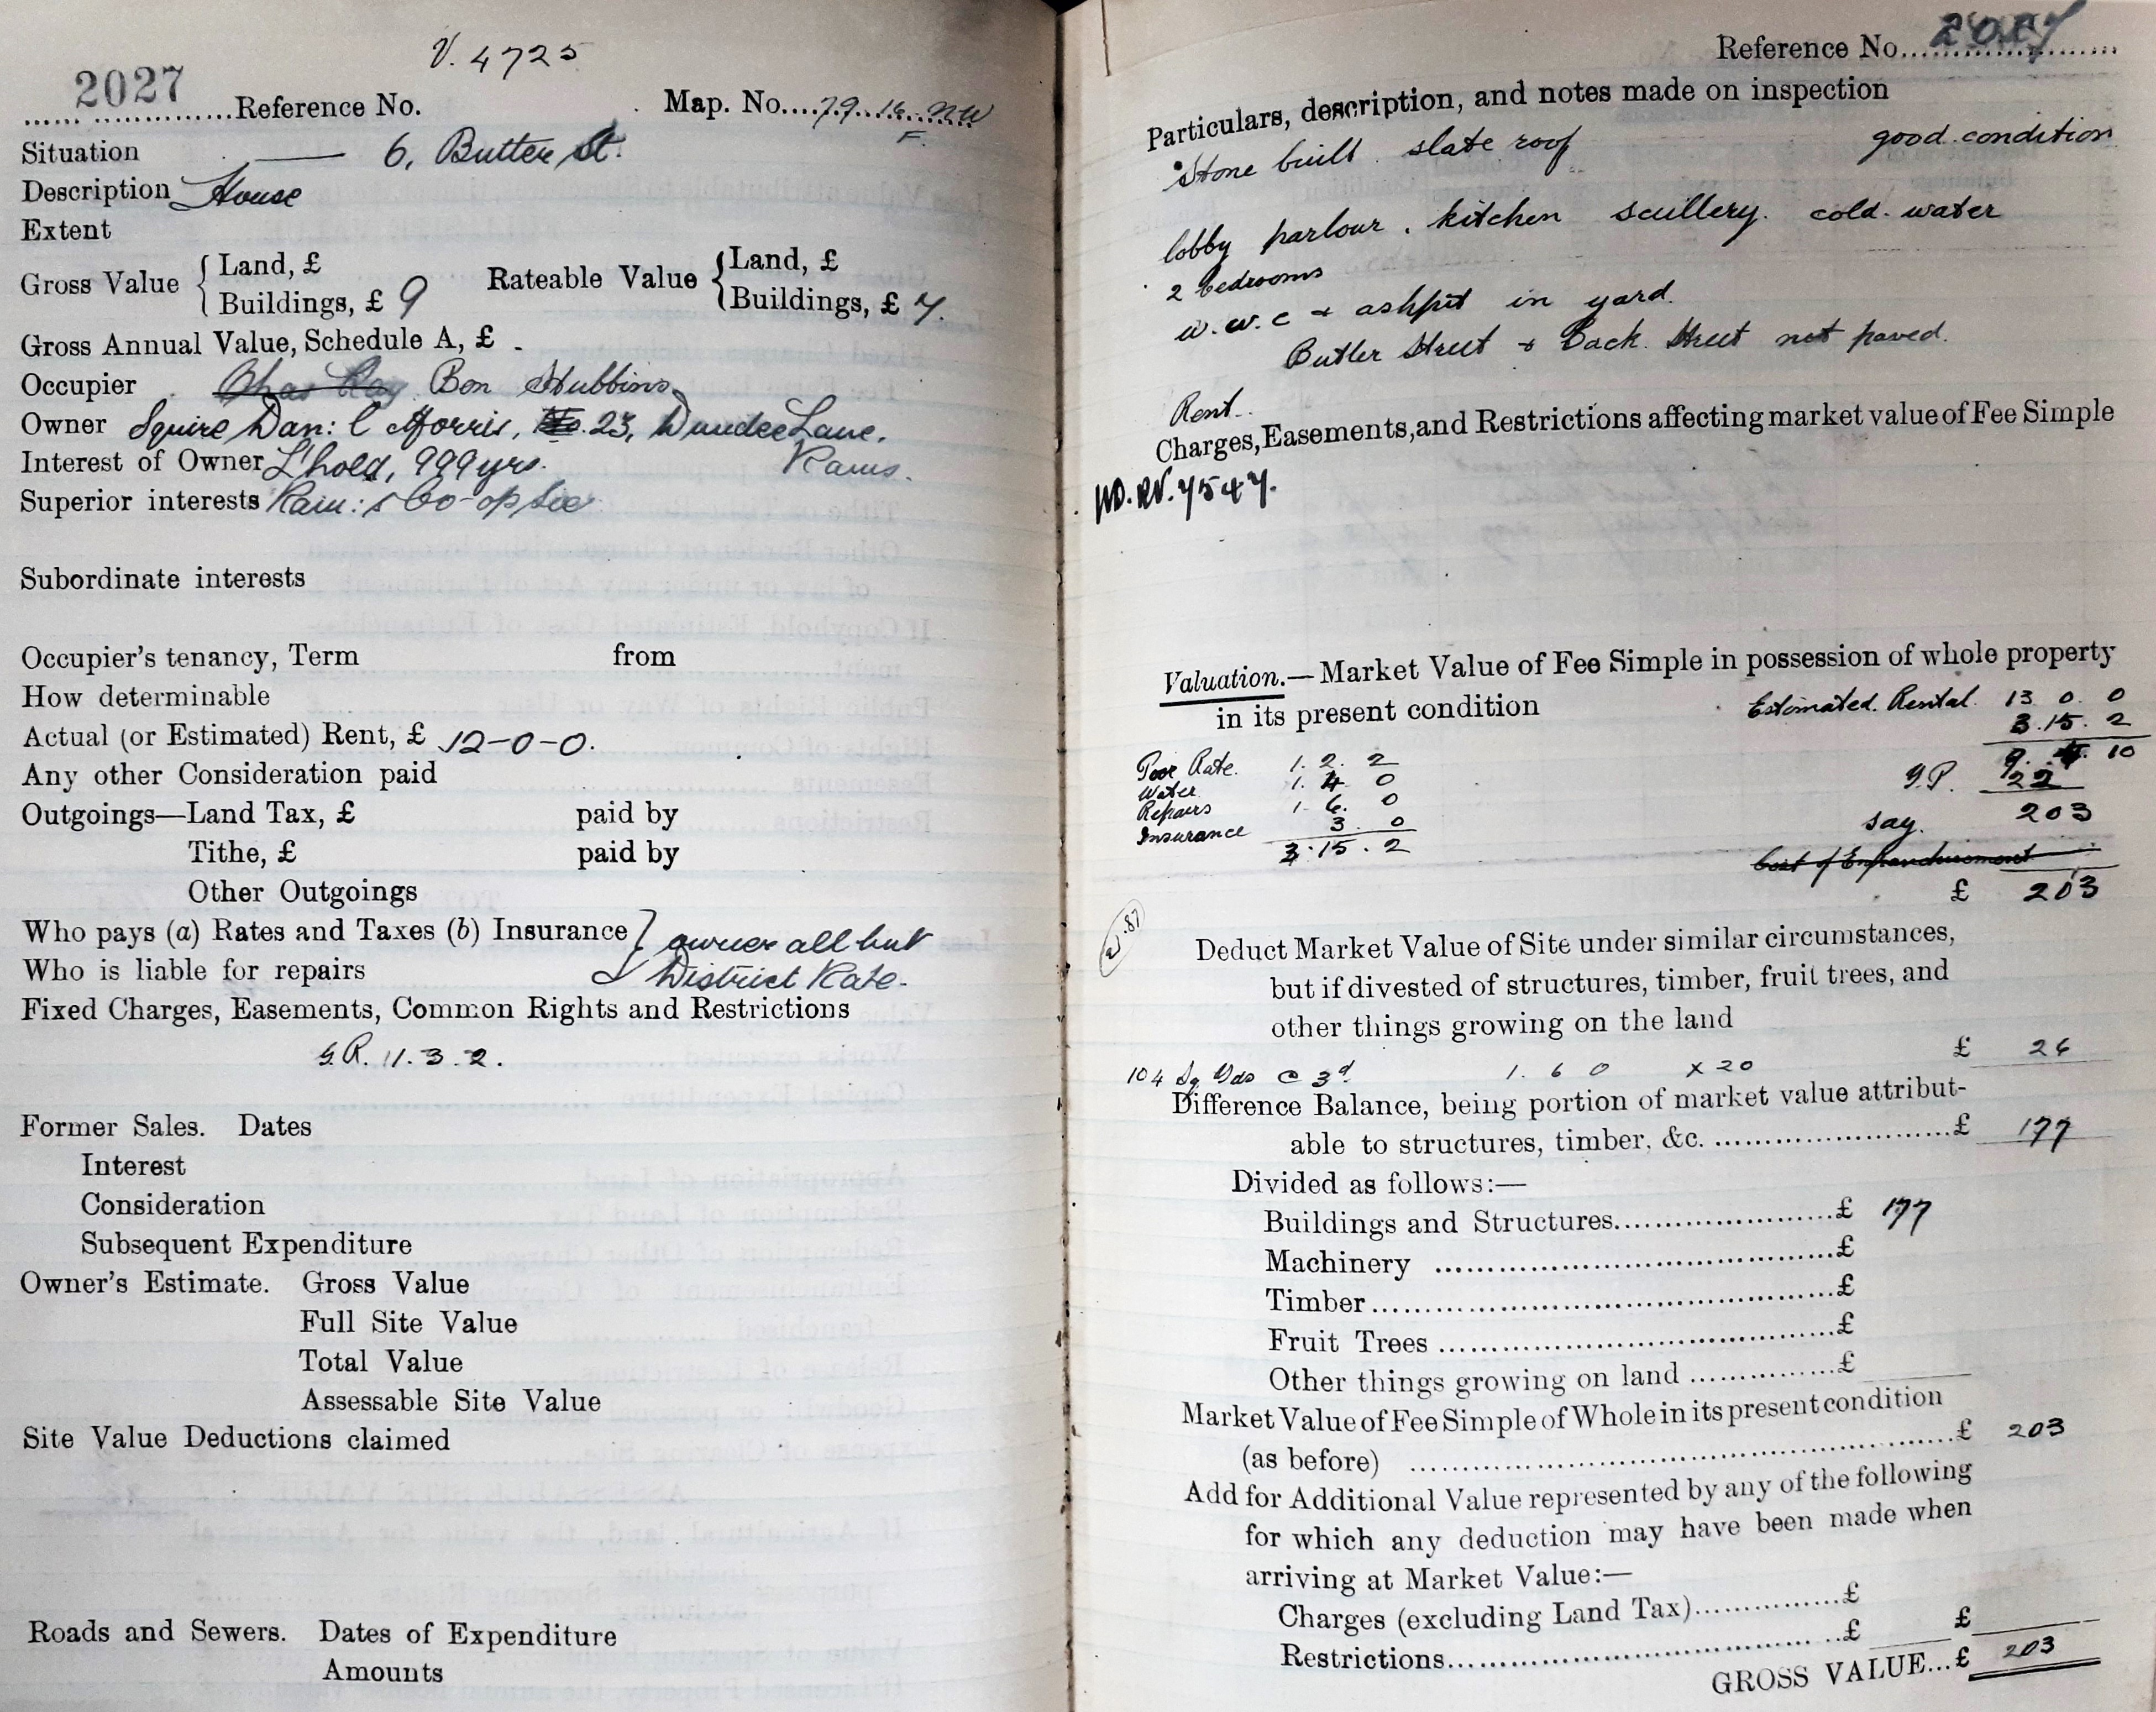 V. 4725
2027 Reference No. Map. No. 79.16.NW
F.
Situation — 6, Butler St.
Description House
Extent
Gross Value { Land, £ Rateable Value { Land, £
Buildings, £ 9 Buildings, £ 7.
Gross Annual Value, Schedule A, £ -
Occupier Chas Kay Ben Stubbins
Owner Squire Dan: l Morris, No. 23, Dundee Lane,
Interest of Owner L'hold, 999 yrs. Rams.
Superior interests Ram: s Co-op Soc
Subordinate interests
Occupier's tenancy, Term from
How determinable
Actual (or Estimated) Rent, £ 12-0-0.
Any other Consideration paid
Outgoings—Land Tax, £ paid by
Tithe, £ paid by
Other Outgoings
Who pays (a) Rates and Taxes (b) Insurance } owner all but
Who is liable for repairs District Rate.
Fixed Charges, Easements, Common Rights and Restrictions
G.R. 11.3.2.
Former Sales. Dates
Interest
Consideration
Subsequent Expenditure
Owner's Estimate. Gross Value
Full Site Value
Total Value
Assessable Site Value
Site Value Deductions claimed
Roads and Sewers. Dates of Expenditure
Amounts
Reference No. 2027
Particulars, description, and notes made on inspection
Stone built. slate roof good condition
lobby parlour, kitchen scullery. cold water
2 bedrooms
w.w.c + ashpit in yard.
Butler Street + Back Street not paved.
Rent.
Charges, Easements, and Restrictions affecting market value of Fee Simple
WD. RV. 7547.
Valuation.—Market Value of Fee Simple in possession of whole property
in its present condition Estimated. Rental 13 0. 0
3.15. 2
Poor Rate. 1. 2. 2 9. 4. 10
Water 1. 4 0 Y.P. 22
Repairs 1. 6. 0
Insurance 3. 0 say. 203
3.15.2 Cost of Enfranchisement
£ 203
.87
Deduct Market Value of Site under similar circumstances,
but if divested of structures, timber, fruit trees, and
other things growing on the land
£ 26
104 Sq Yds @ 3d. 1. 6 0 x 20
Difference Balance, being portion of market value attribut-
able to structures, timber, &c. £ 177
Divided as follows:—
Buildings and Structures £ 177
Machinery £
Timber £
Fruit Trees £
Other things growing on land £
Market Value of Fee Simple of Whole in its present condition
(as before) £ 203
Add for Additional Value represented by any of the following
for which any deduction may have been made when
arriving at Market Value:—
Charges (excluding Land Tax) £
Restrictions £ £
GROSS VALUE...£ 203